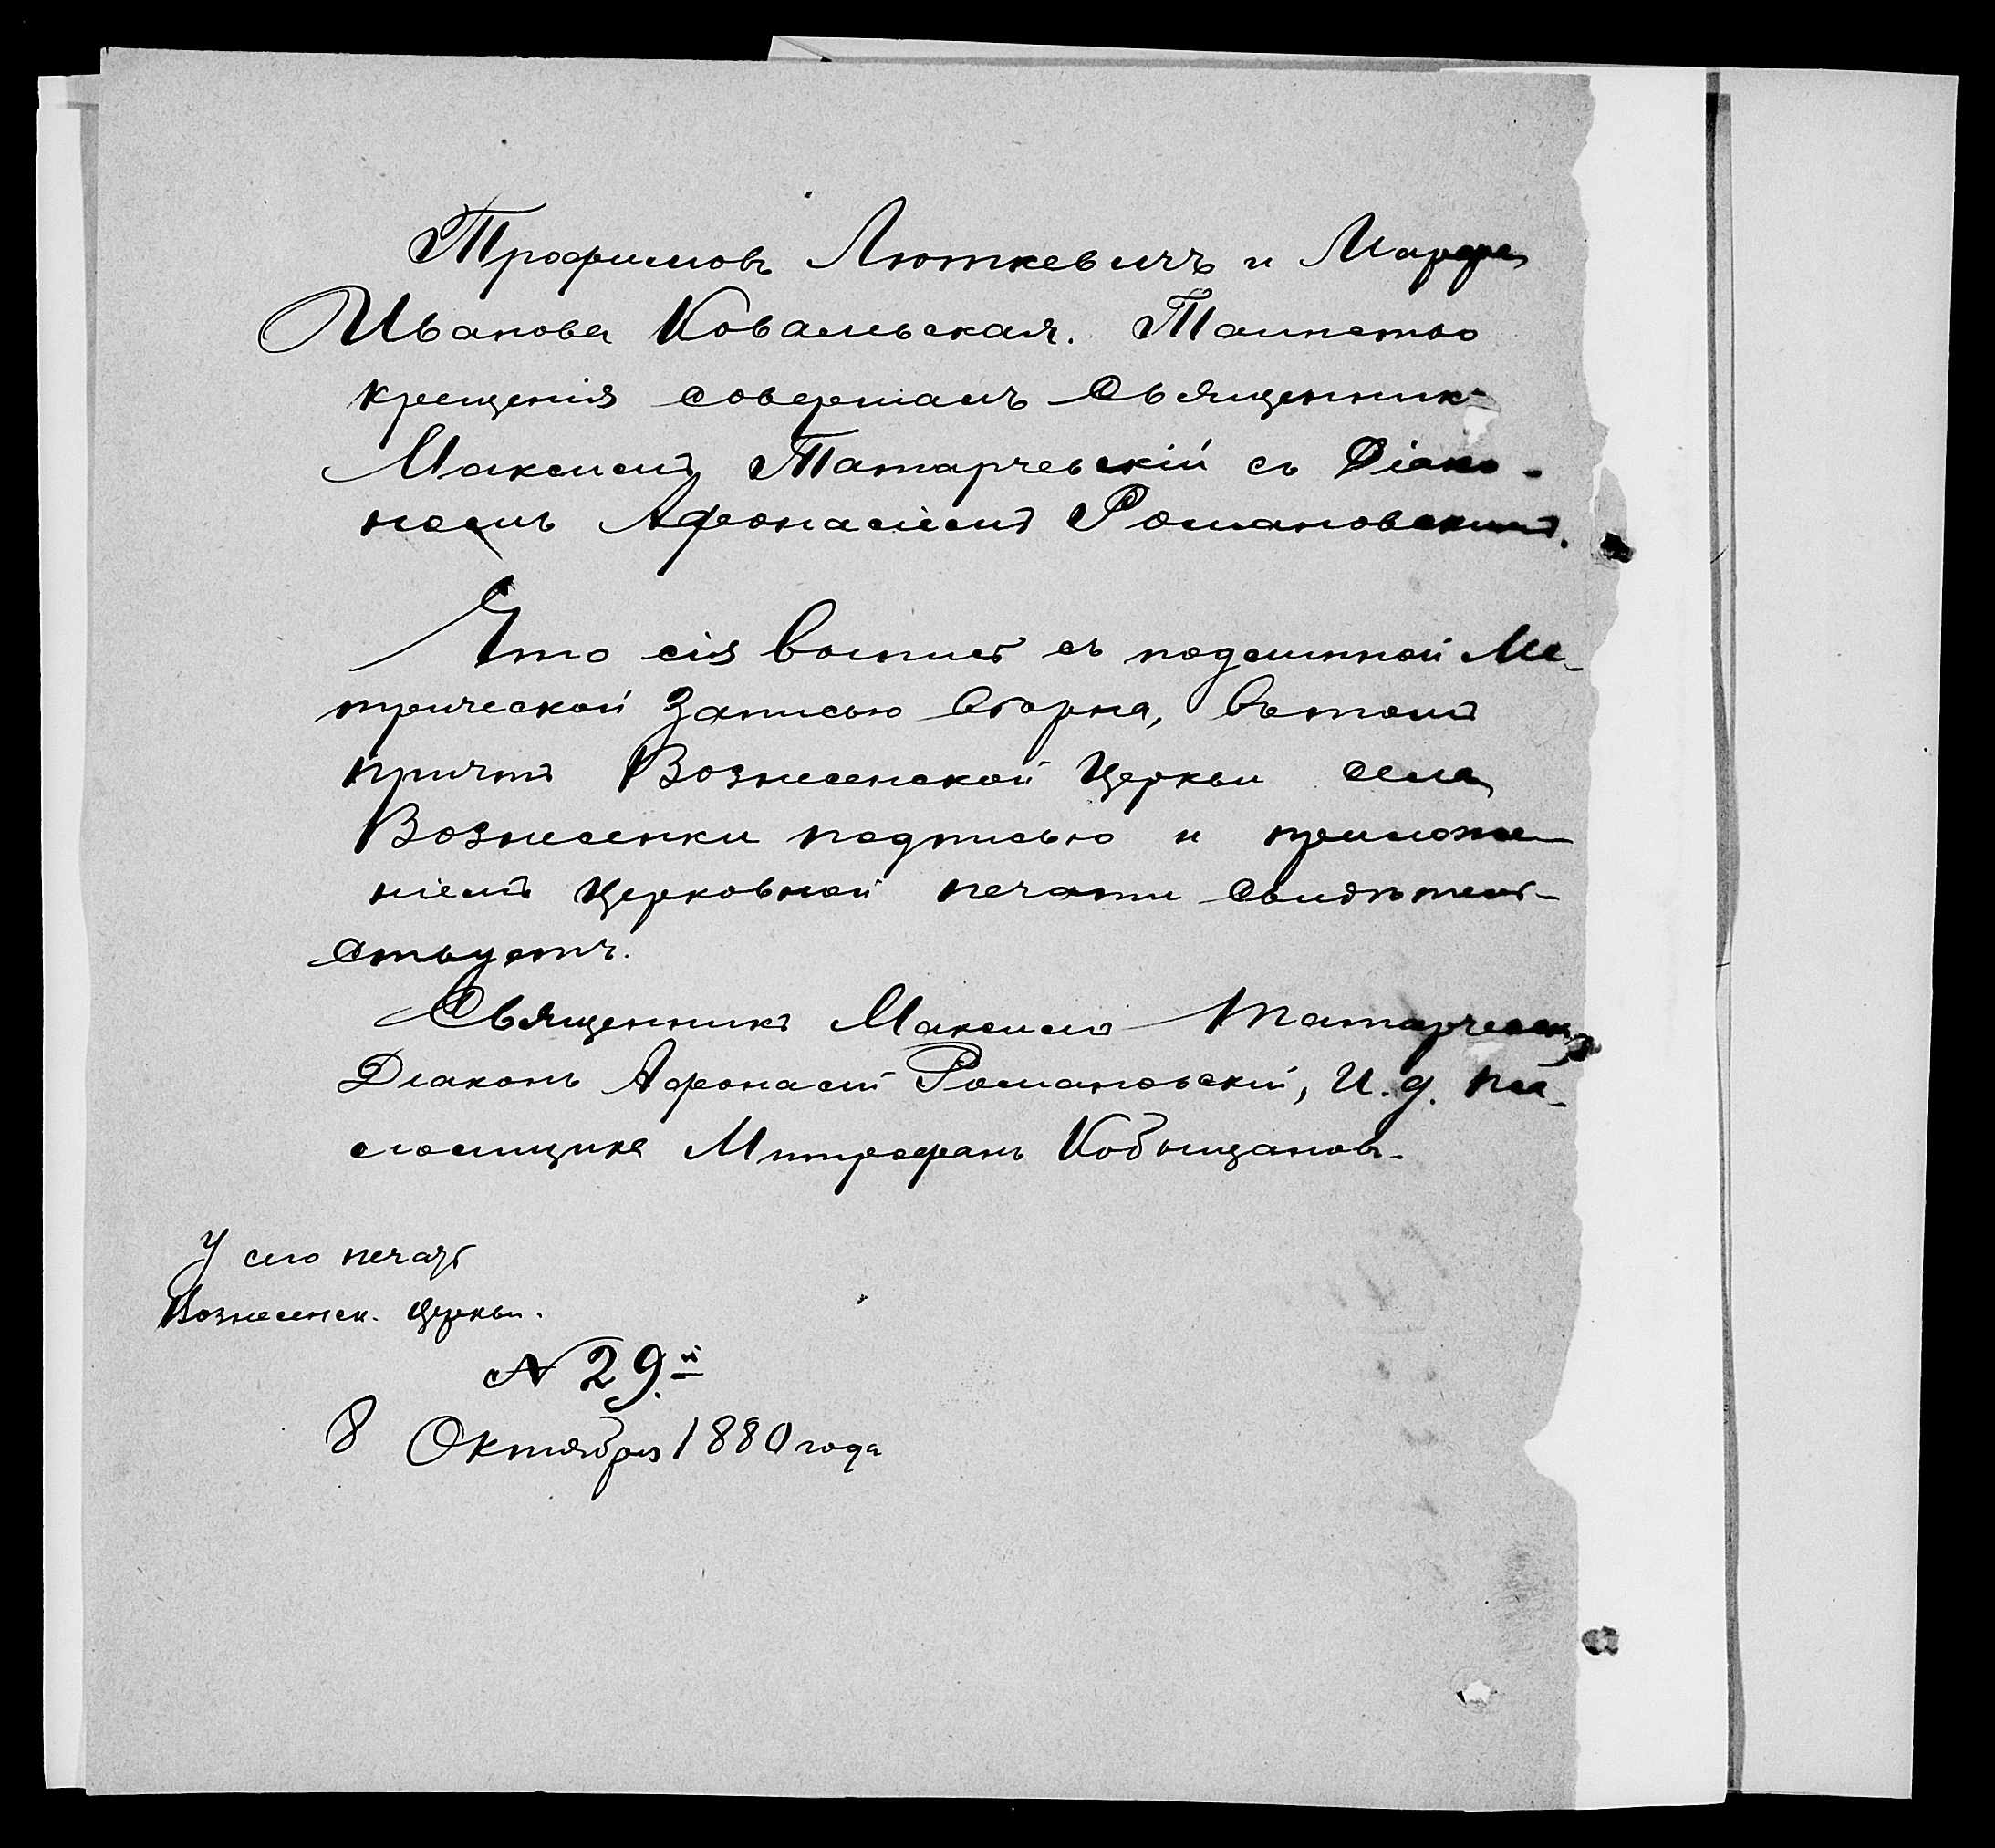 Трофимовъ Люткевичъ и Марфа
Иванова Ковальская. Таинство
крещенія совершалъ Священникъ
Максимъ Татарчевскій съ Діако-
номъ Афонасіемъ Романовскимъ.
Что сія выпись съ подлинной Ме-
трической записью вѣрна, въ томъ
причтъ Вознесенской Церкви села
Вознесенки подписью и приложе-
ніемъ Церковной печати свидѣтель-
ствуетъ.
Священникъ Максимъ Татарчевск
Діаконъ Афонасій Романовскій, И. д. Пса-
ломщика Митрофанъ Кобыщановъ.
У сего печать
Вознесенск. Церкви.
№ 29.й
8 Октября 1880 года